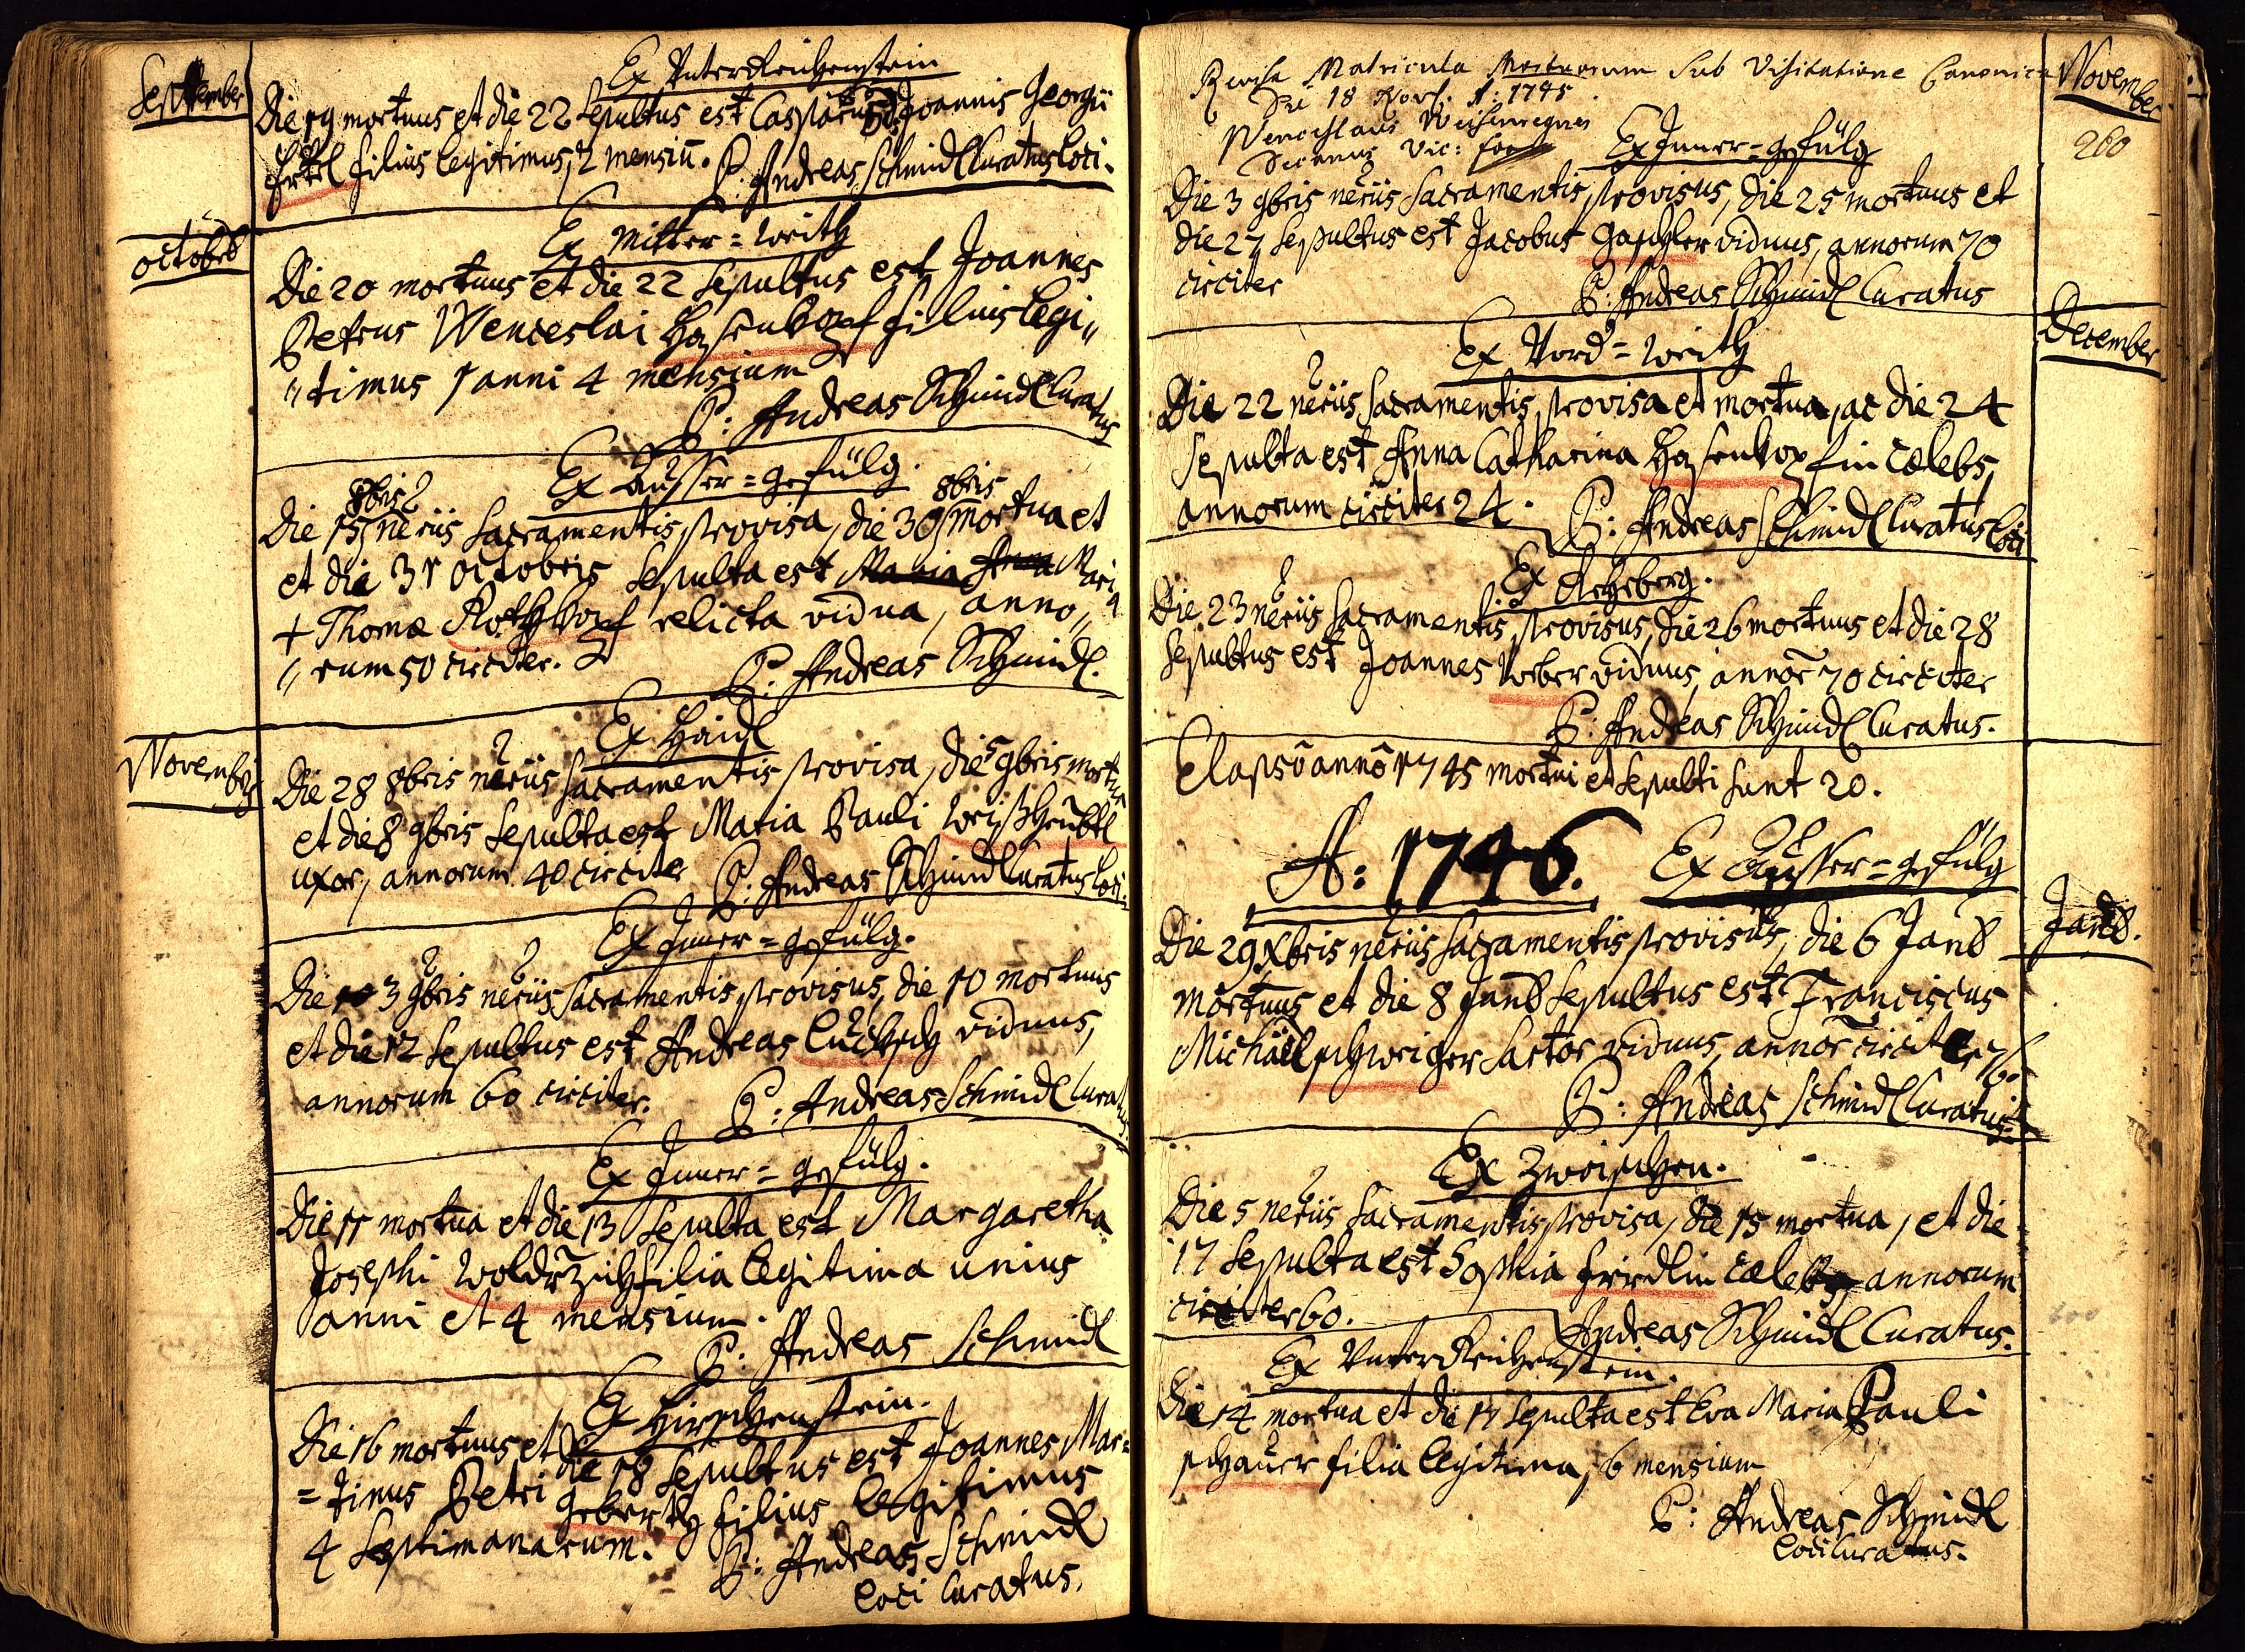 September
Ex Unterreichenstein
Die 19 mortuus et die 22 sepultus est Casparus Joannis Georgii
Ertl filius legitimus, 2 mensiu. P: Andreas Schmidl Curatus loci.
October
Ex Mitter=weith
Die 20 mortuus et die 22 sepultus est Joannes
Petrus Wenceslai Hasenkopf filius legi„
„timus 1 anni 4 mensium
P: Andreas Schmidl Curatus
Ex Äusser=gefülg.
8bris 8bris
Die 15 neriis sacramentis provisa, die 30 mortua et
et die 31 octobris sepulta est Maria Anna Maria
+ Thomæ Rothkopf relicta vidua, anno„
„rum 50 circiter. P: Andreas Schmidl.
Ex Haidl
Novembris
Die 28 8bris neriis sacramentis provisa, die 5 9bris mortua
et die 8 9bris sepulta est Maria Pauli Weishäubtl
uxor, annorum 40 circiter P: Andreas Schmidl Curatus loci.
Ex Inner=gefülg.
Die 10 3 9bris neriis sacramentis provisus, die 10 mortuus
et die 12 sepultus est Andreas viduus,
annorum 60 circiter. P: Andreas Schmidl Curatus
Ex Inner=gefülg.
Die 11 mortua et die 13 sepulta est Margaretha
Josephi filia legitima unius
anni et 4 mensium.
P: Andreas Schmidl
Ex Hirschenstein.
Die 16 mortuus et die 18 sepultus est Joannes Mar=
=tinus Petri Geberth filius legitimus
4 septimanarum. P: Andreas Schmidl
loci Curatus.
Matricula Mortuorum sub Visitatione Canonica
Die 18 Nov. A: 1745
Wenceslaus
Vic: for
November
260
Ex Inner=gefülg
Die 3 9bris neriis sacramentis provisus, die 25 mortuus et
die 27 sepultus est Jacobus Gaschler viduus, annorum 70
circiter P: Andreas Schmidl Curatus
December
Ex Vord=weith
Die 22 neriis sacramentis provisa et mortua, ac die 24
sepulta est Anna Catharina Hasenkopfin cælebs,
annorum circiter 24. P: Andreas Schmidl Curatus loci
Ex Rehberg.
Die 23 neriis sacramentis provisus, die 26 mortuus et die 28
sepultus est Joannes Weber viduus, annor 70 circiter
P: Andreas Schmidl Curatus.
Elapso anno 1745 mortui et sepulti sunt 20.
A: 1746. Ex Äusser=gefülg
Jan8.
Die 29 Xbris neriis sacramentis provisus, die 6 Jan8
mortuus et die 8 Jan8 sepultus est Franciscus
Michäel Schweiger sartor viduus, annor circiter 76.
P: Andreas Schmidl Curatus
Ex Zwoischen.
Die 5 neriis sacramentis provisa, die 15 mortua, et die
17 sepulta est Sophia Fridlin cælebs annorum
circiter 60. Andreas Schmidl Curatus.
Ex Unterreichenstein.
Die 14 mortua et die 17 sepulta est Eva Maria Pauli
schauer filia legitima, 6 mensium
P: Andreas Schmidl
loci Curatus.